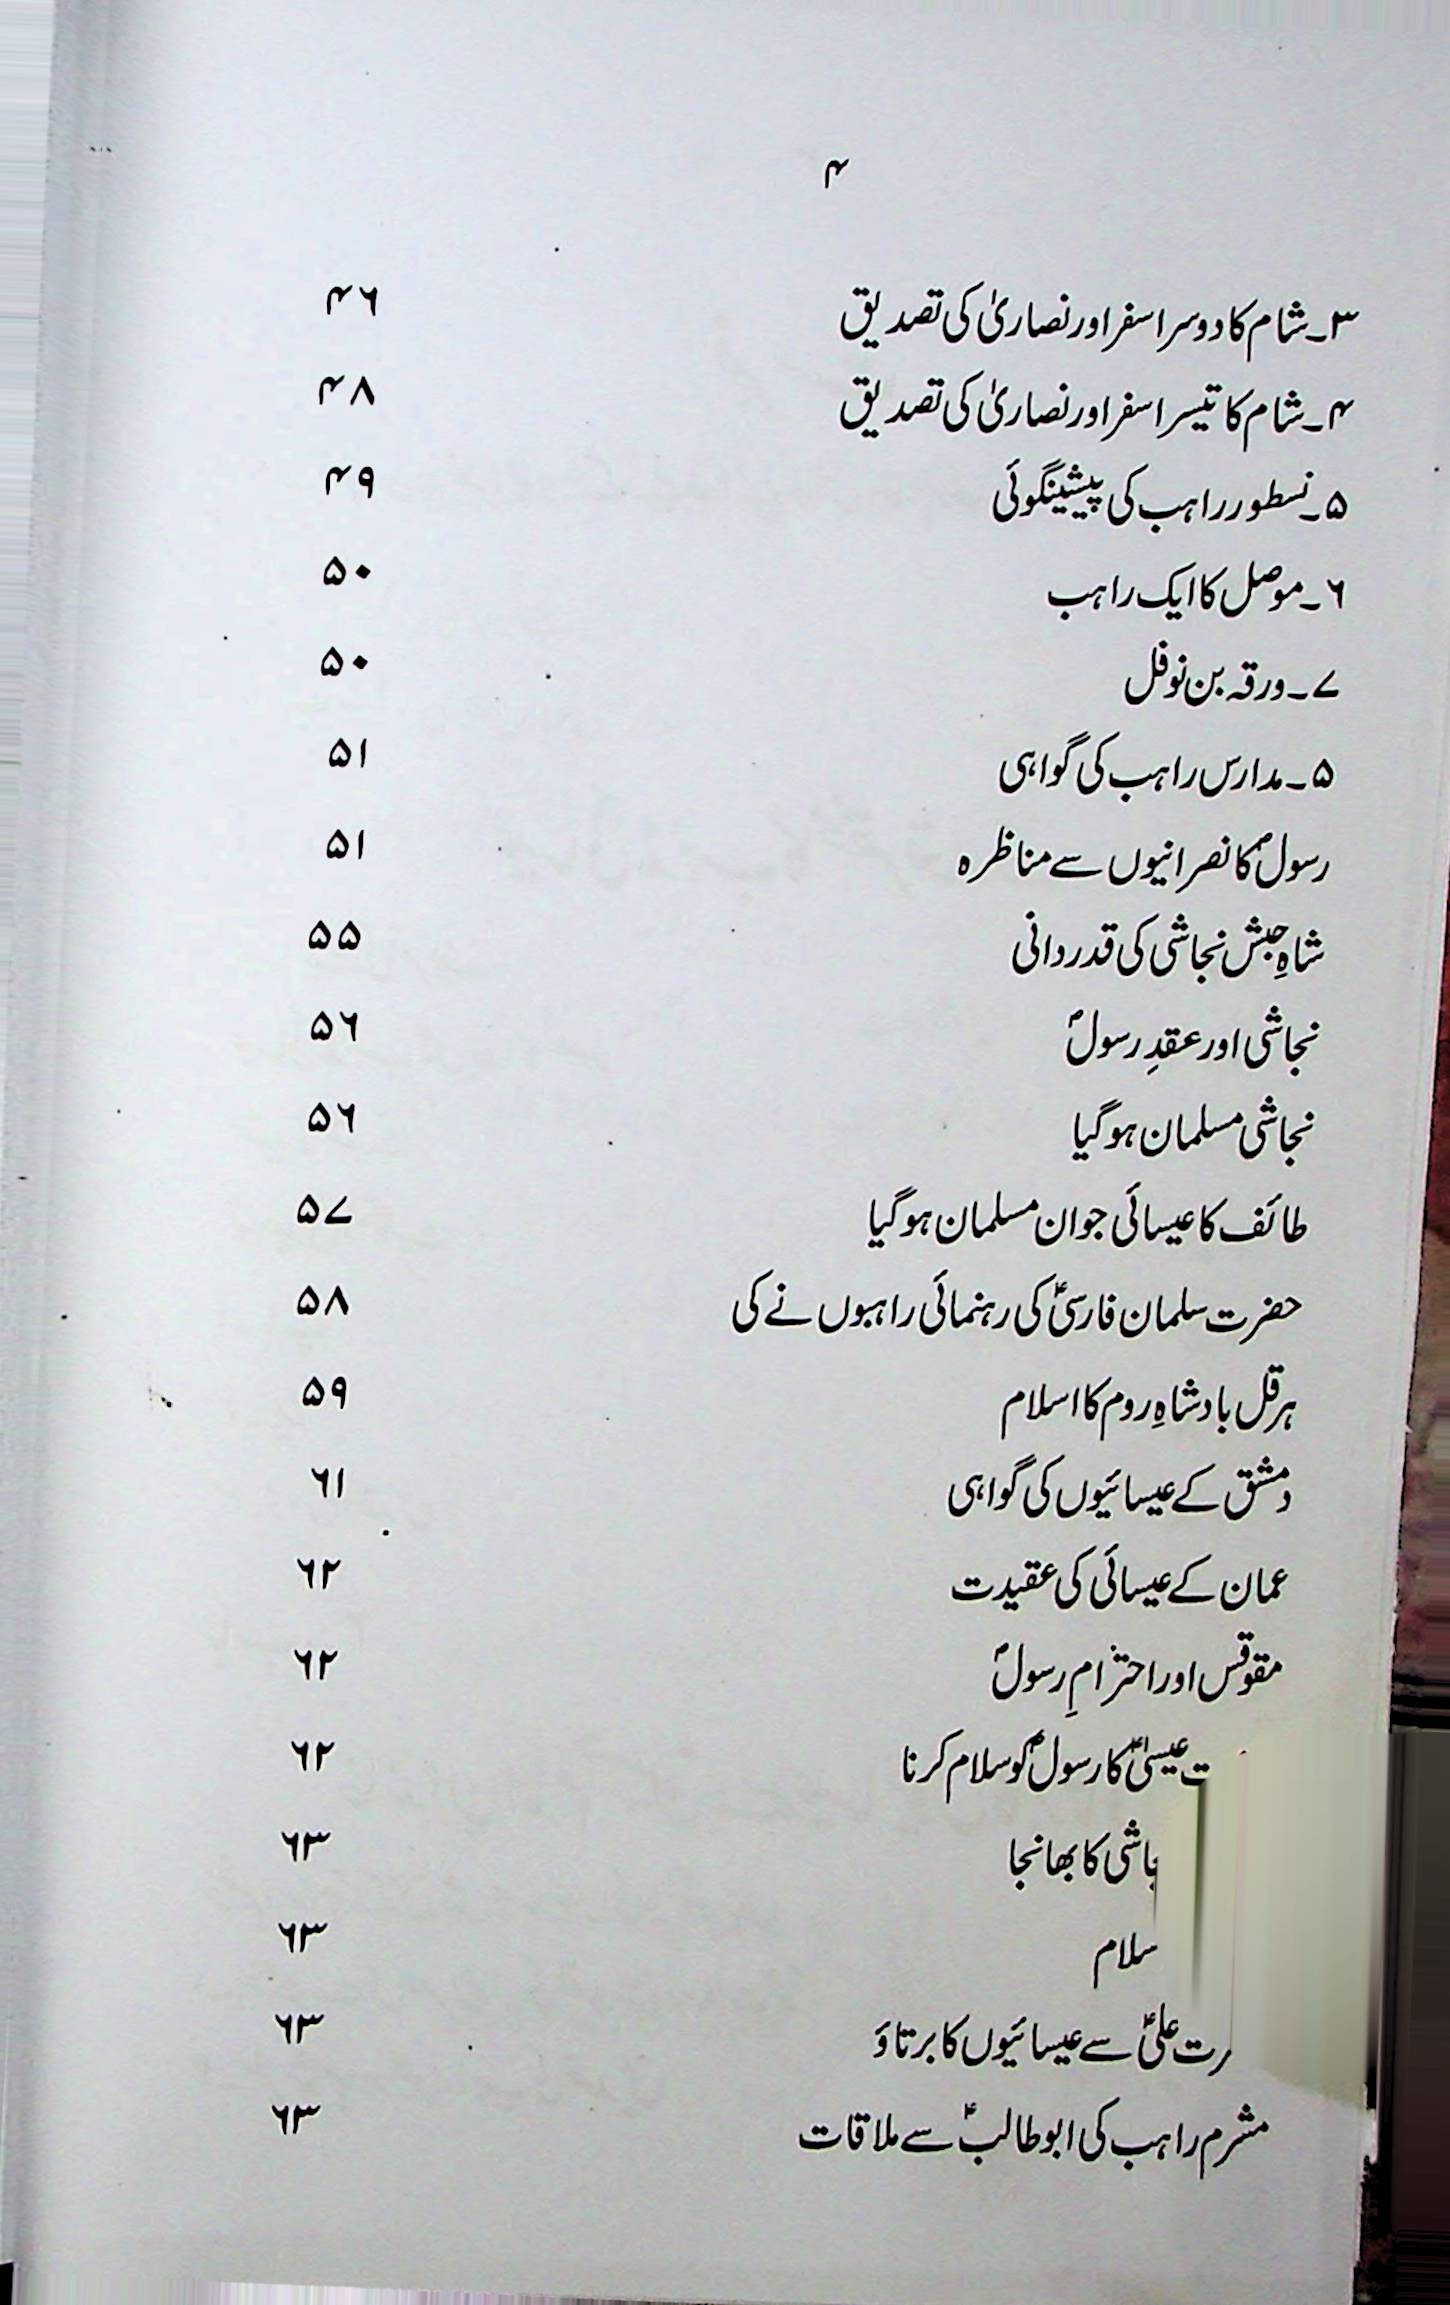 ۴
۳۔شام کا دوسرا سفر اور نصاریٰ کی تصدیق ۴۶
۴۔شام کا تیسرا سفر اور نصاریٰ کی تصدیق ۴۸
۵۔نسطور راہب کی پیشینگوئی ۴۹
۶۔موصل کا ایک راہب ۵۰
۷۔ورقہ بن نوفل ۵۰
۵۔مدارس راہب کی گواہی ۵۱
رسولؐ کا نصرانیوں سے مناظرہ ۵۱
شاہِ حبش نجاشی کی قدردانی ۵۵
نجاشی اور عقدِ رسولؐ ۵۶
نجاشی مسلمان ہوگیا ۵۶
طائف کا عیسائی جوان مسلمان ہوگیا ۵۷
حضرت سلمان فارسیؑ کی رہنمائی راہبوں نے کی ۵۸
ہرقل بادشاہِ روم کا اسلام ۵۹
دمشق کے عیسائیوں کی گواہی ۶۱
عمان کے عیسائی کی عقیدت ۶۲
مقوقس اور احترامِ رسولؐ ۶۲
عیسیٰؑ کا رسولؐ کو سلام کرنا ۶۲
کا بھانجا ۶۳
۶۳
علیؑ سے عیسائیوں کا برتاؤ ۶۳
مشرم راہب کی ابوطالبؑ سے ملاقات ۶۳